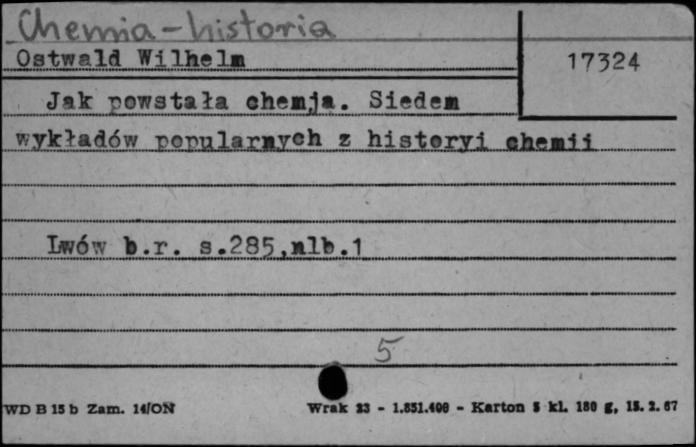 Chemia - historia
Ostwald Wilhelm
17324
Jak powstała chemja. Siedem
wykładów popularnych z historyi chemii
Lwów b.r. s.285,nlb.1
5
WD B 15 b Zam. 14/ON Wrak 23 - 1.851.400 - Karton 5 kl. 180 g, 15. 2. 67